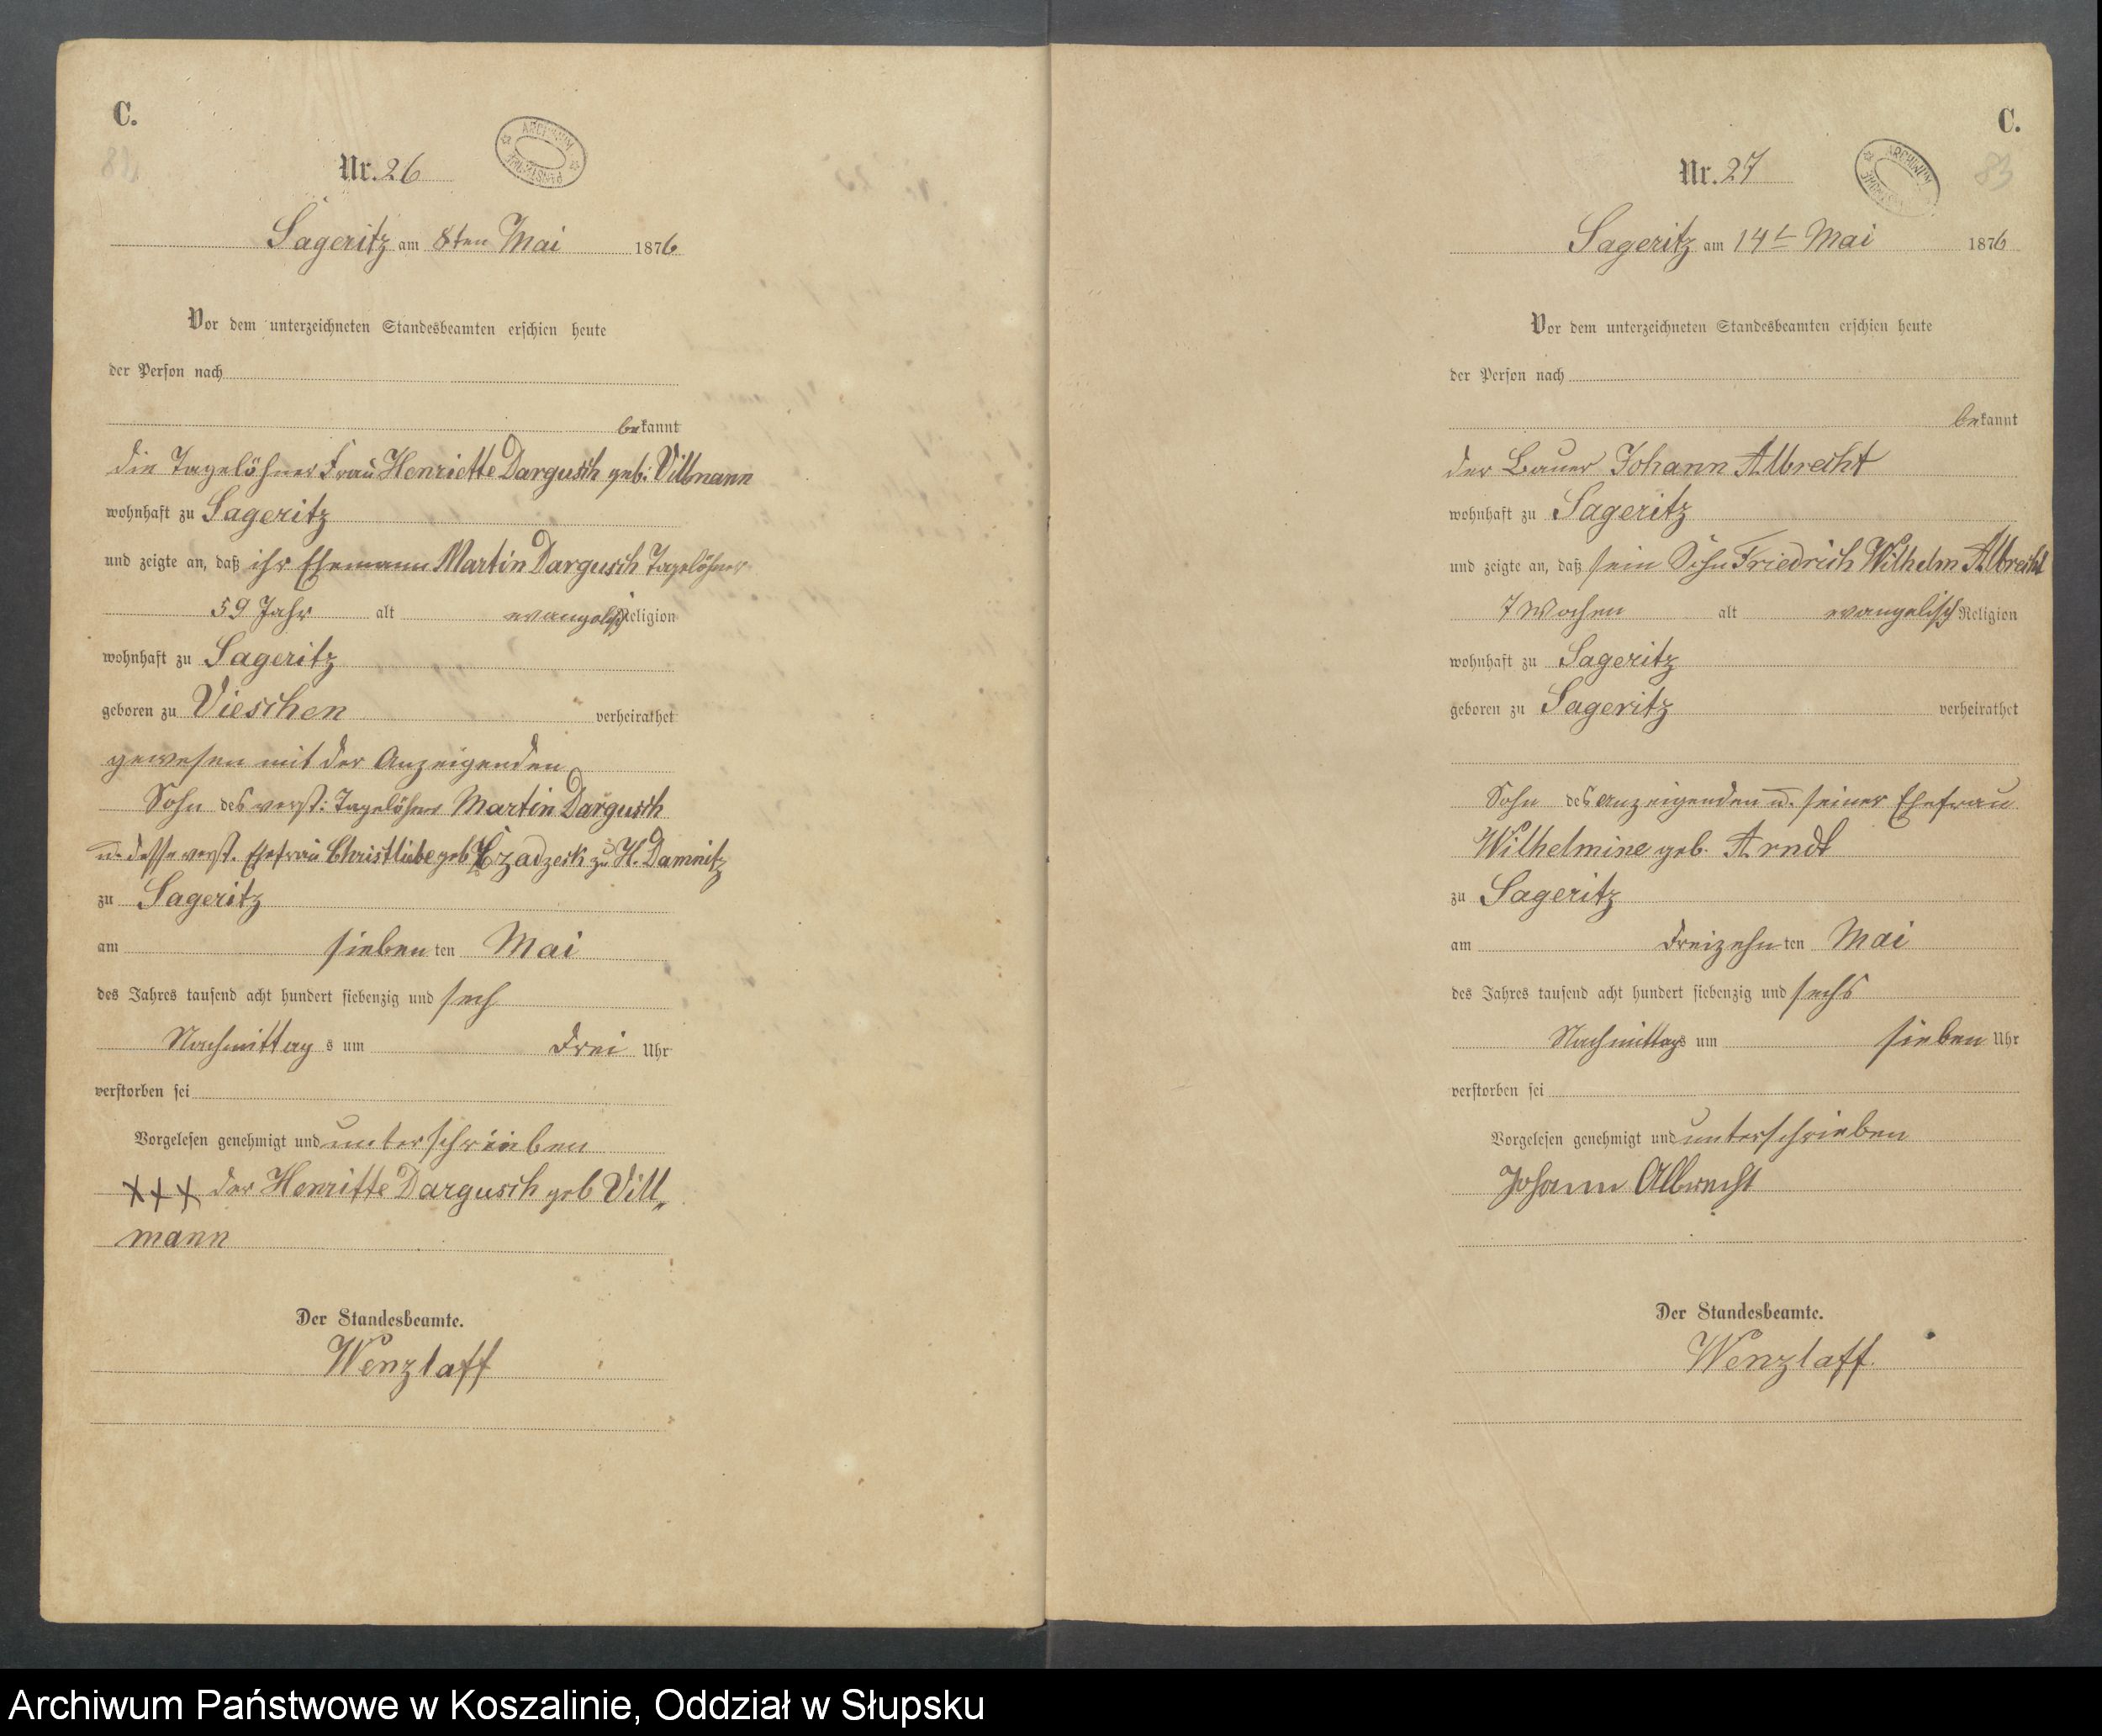 C.
82
Nr. 26
ARCHIWUM PAŃSTWOWE
Sageritz am 8ten Mai 1876
Vor dem unterzeichneten Standesbeamten erschien heute
der Person nach
bekannt
die Tagelöhner Frau Henriette Dargusch geb: Villmann
wohnhaft zu Sageritz
und zeigte an, daß ihr Ehemann Martin Dargusch Tagelöhner
59 Jahr alt evangelisch Religion
wohnhaft zu Sageritz
geboren zu Vieschen verheirathet
gewesen mit der Anzeigenden
Sohn des verst: Tagelöhner Martin Dargusch
u. desse verst. Ehefrau Christliebe geb zu H. Damnitz
zu Sageritz
am sieben ten Mai
des Jahres tausend acht hundert siebenzig und sech
Nachmittag s um drei Uhr
verstorben sei
Vorgelesen genehmigt und unterschrieben
+++ der Henritte Dargusch geb Vill„
mann
Der Standesbeamte.
Wenzlaff
C.
83
Nr. 27
ARCHIWUM PAŃSTWOWE
Sageritz am 14t Mai 1876
Vor dem unterzeichneten Standesbeamten erschien heute
der Person nach
bekannt
der Bauer Johann Albrecht
wohnhaft zu Sageritz
und zeigte an, daß sein Sohn Friedrich Wilhelm Albrecht
7 Wochen alt evangelisch Religion
wohnhaft zu Sageritz
geboren zu Sageritz verheirathet
Sohn des Anzeigenden u. seiner Ehefrau
Wilhelmine geb. Arndt
zu Sageritz
am dreizehn ten Mai
des Jahres tausend acht hundert siebenzig und sechs
Nachmittags um sieben Uhr
verstorben sei
Vorgelesen genehmigt und unterschrieben
Johann Albrecht
Der Standesbeamte.
Wenzlaff.
Archiwum Państwowe w Koszalinie, Oddział w Słupsku